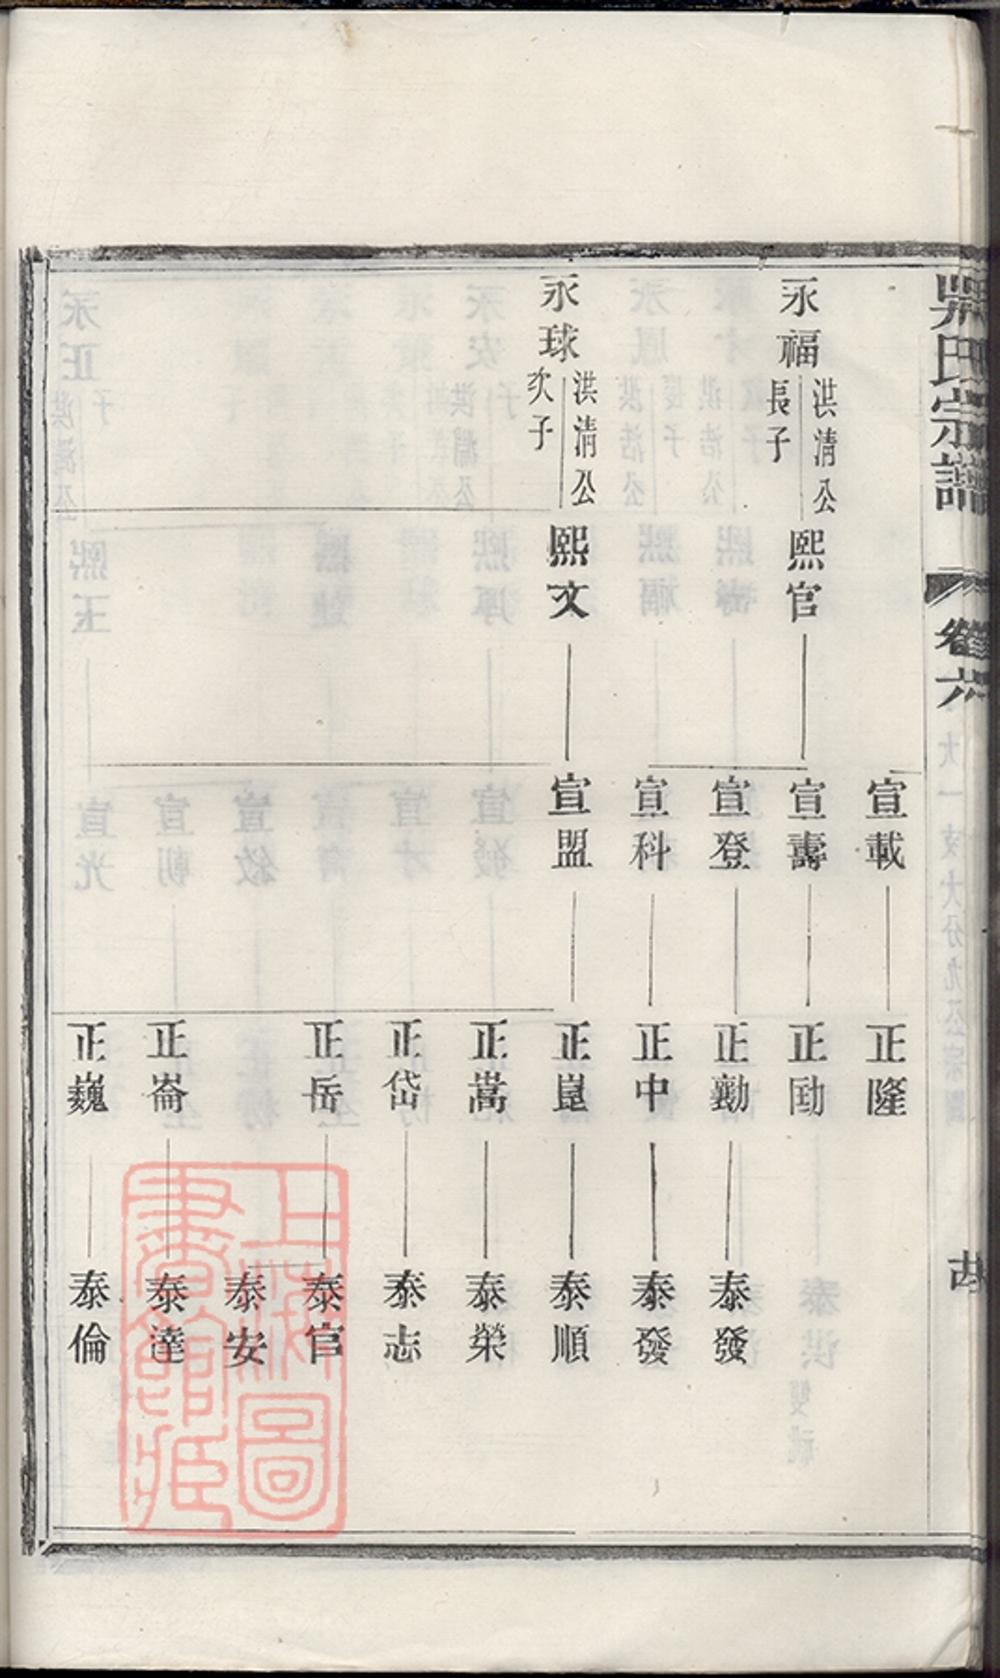 吳氏宗譜
卷六
大一支大分九公宗圖
永福
洪清公
長子
熙官
永球
洪清公
次子
熙文
宣載
宣壽
宣登
宣科
宣盟
正隆
正勛
正勷
正中
正崑
正嵩
正岱
正岳
正崙
正巍
泰發
泰發
泰順
泰榮
泰志
泰官
泰安
泰達
泰倫
上海圖
書館藏